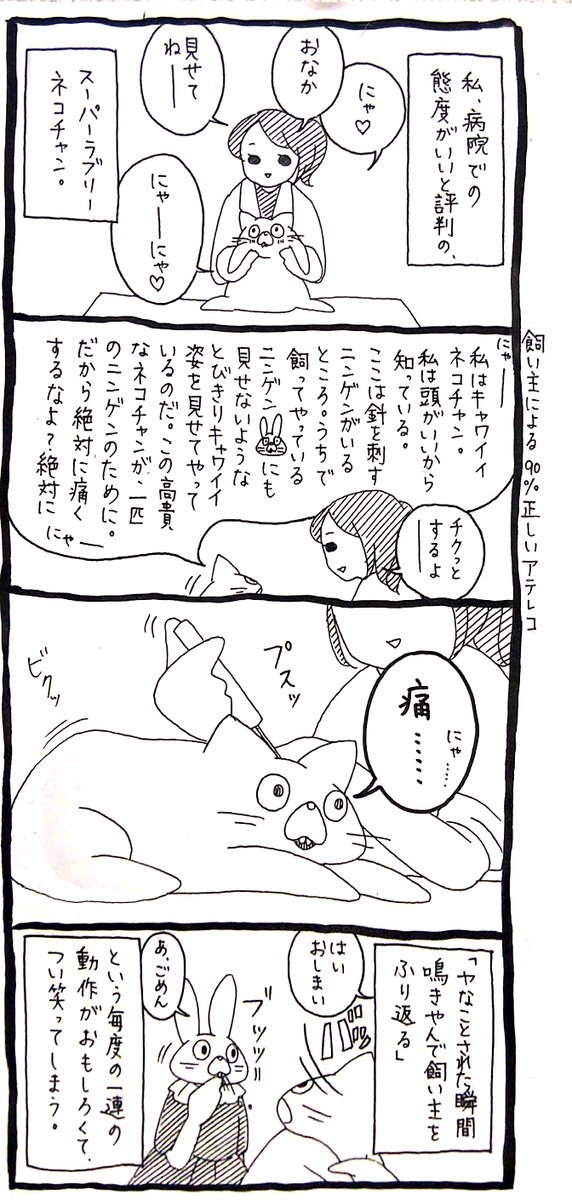 飼い主による90%正しいアテレコ
私、病院での
態度がいいと評判の、
にゃ♡
おなか
見せて
ねー
スーパーラブリー
ネコチャン。
にゃーにゃ♡
にゃー
私はキャワイイ
ネコチャン。
私は頭がいいから
知っている。
ここは針を刺す
ニンゲンがいる
ところ。うちで
飼ってやっている
ニンゲンにも
見せないような
とびきりキャワイイ
姿を見せてやって
いるのだ。この高貴
なネコチャンが、一匹
のニンゲンのために。
だから絶対に痛く
するなよ?絶対に
にゃー
チクっと
するよ
ー
プスッ
ビクッ
にゃ……
痛……
「ヤなことされた瞬間
鳴きやんで飼い主を
ふり返る」
はい
おしまい
ブッッ
あ、ごめん
という毎度の一連の
動作がおもしろくて、
つい笑ってしまう。